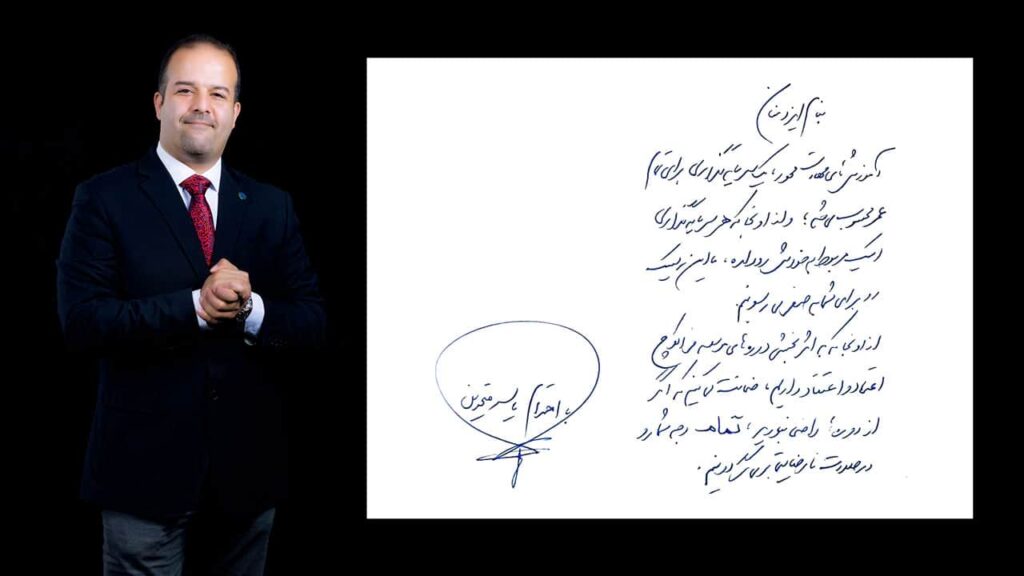 بنام ایزد منان
آموزش‌های مهارت محور، یک سرمایه‌گذاری برای تمام
عمر محسوب می‌شه؛ ولی از اونجا که هر سرمایه‌گذاری
ریسک مربوط به خودش رو داره، ما این ریسک
رو برای شما به صفر می‌رسونیم.
از اونجا که به اثربخشی دوره‌های مدرسه فراکوچ
اعتماد و اعتقاد داریم، ضمانت می‌کنیم که اگر
از دوره‌ها راضی نبودید، تمام وجه شما رو
در صورت نارضایتی برمی‌گردونیم.
با احترام یاسر متحدین